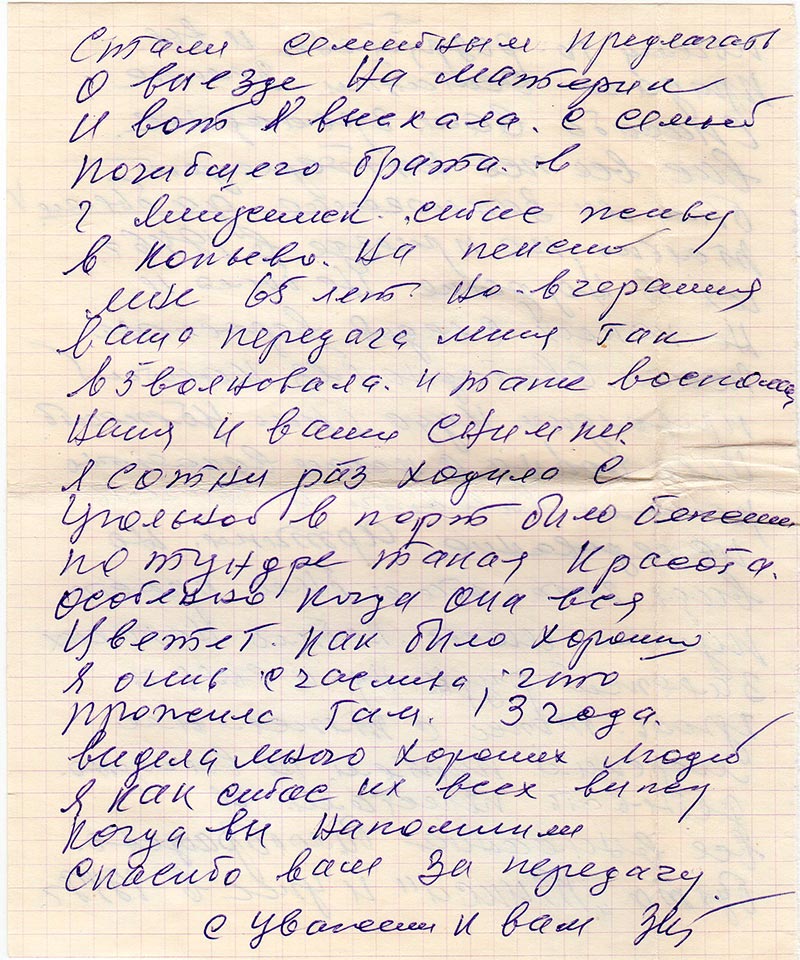 Стали семейным предлагать
о выезде на материк
и вот я выехала. с семьей
погибшего брата. в
г сейчас живу
в Копьево. на пенсии
мне 65 лет. но. вчерашняя
ваша передача меня так
взволновала. и такие воспоми
нания и ваши снимки.
я сотни раз ходила с
Угольной в порт было бежиш
по тундре такая красота.
особенно когда она вся
цветет. как было хорошо
я очень счаслива, что
прожила там. 13 года.
видела много хороших людей
я как сейчас их всех вижу
когда вы напомнили
спасибо вам за передачу.
с уважением к вам